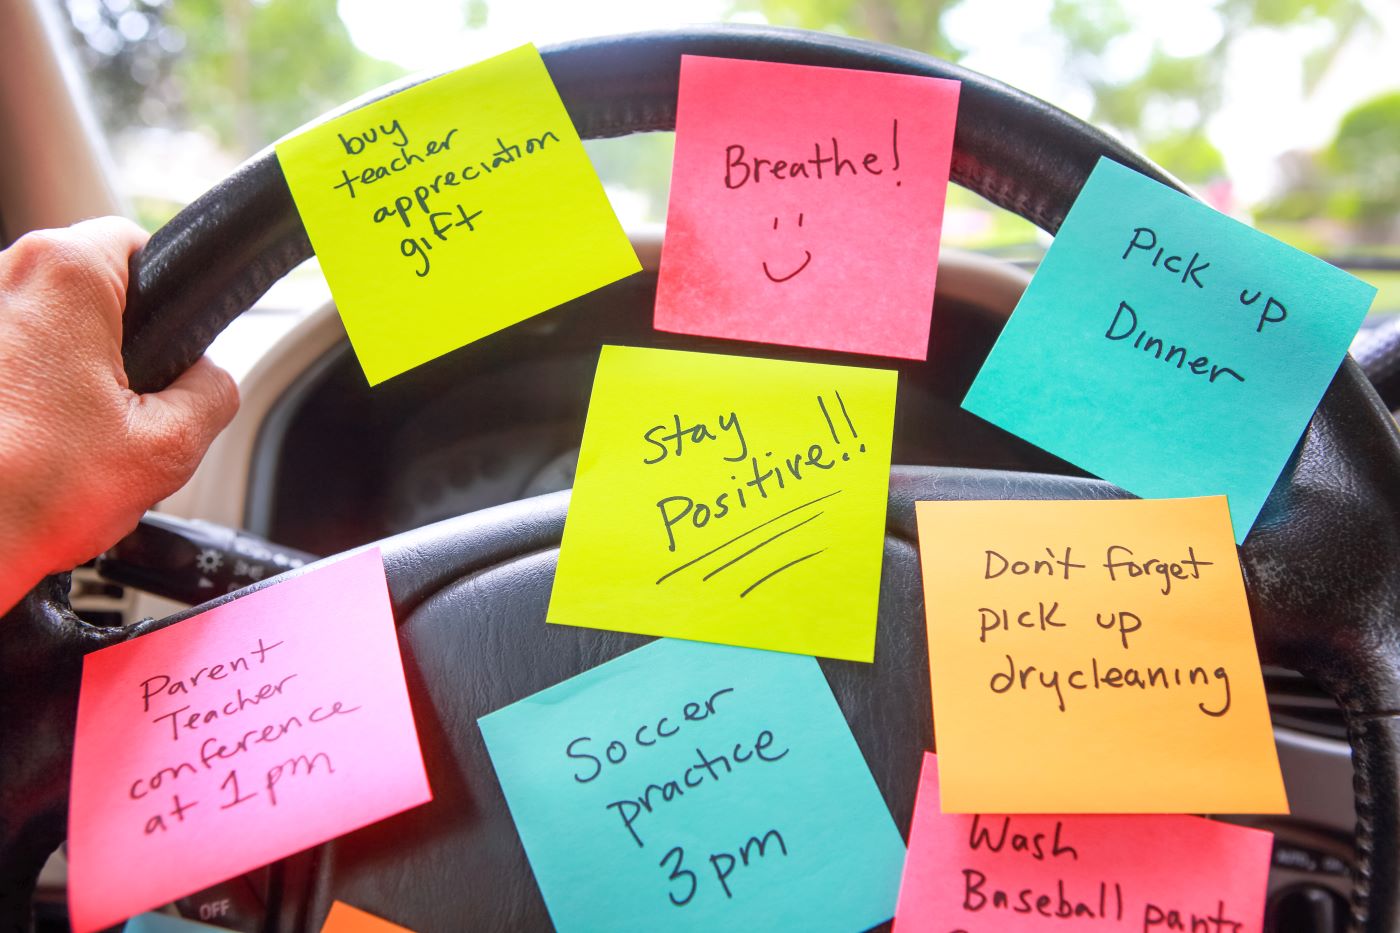 buy
teacher
appreciation
gift
Breathe!
Pick up
Dinner
Stay
Positive!!
Don't forget
pick up
drycleaning
Parent
Teacher
conference
at 1pm
Soccer
practice
3pm
Wash
Baseball pants
OFF